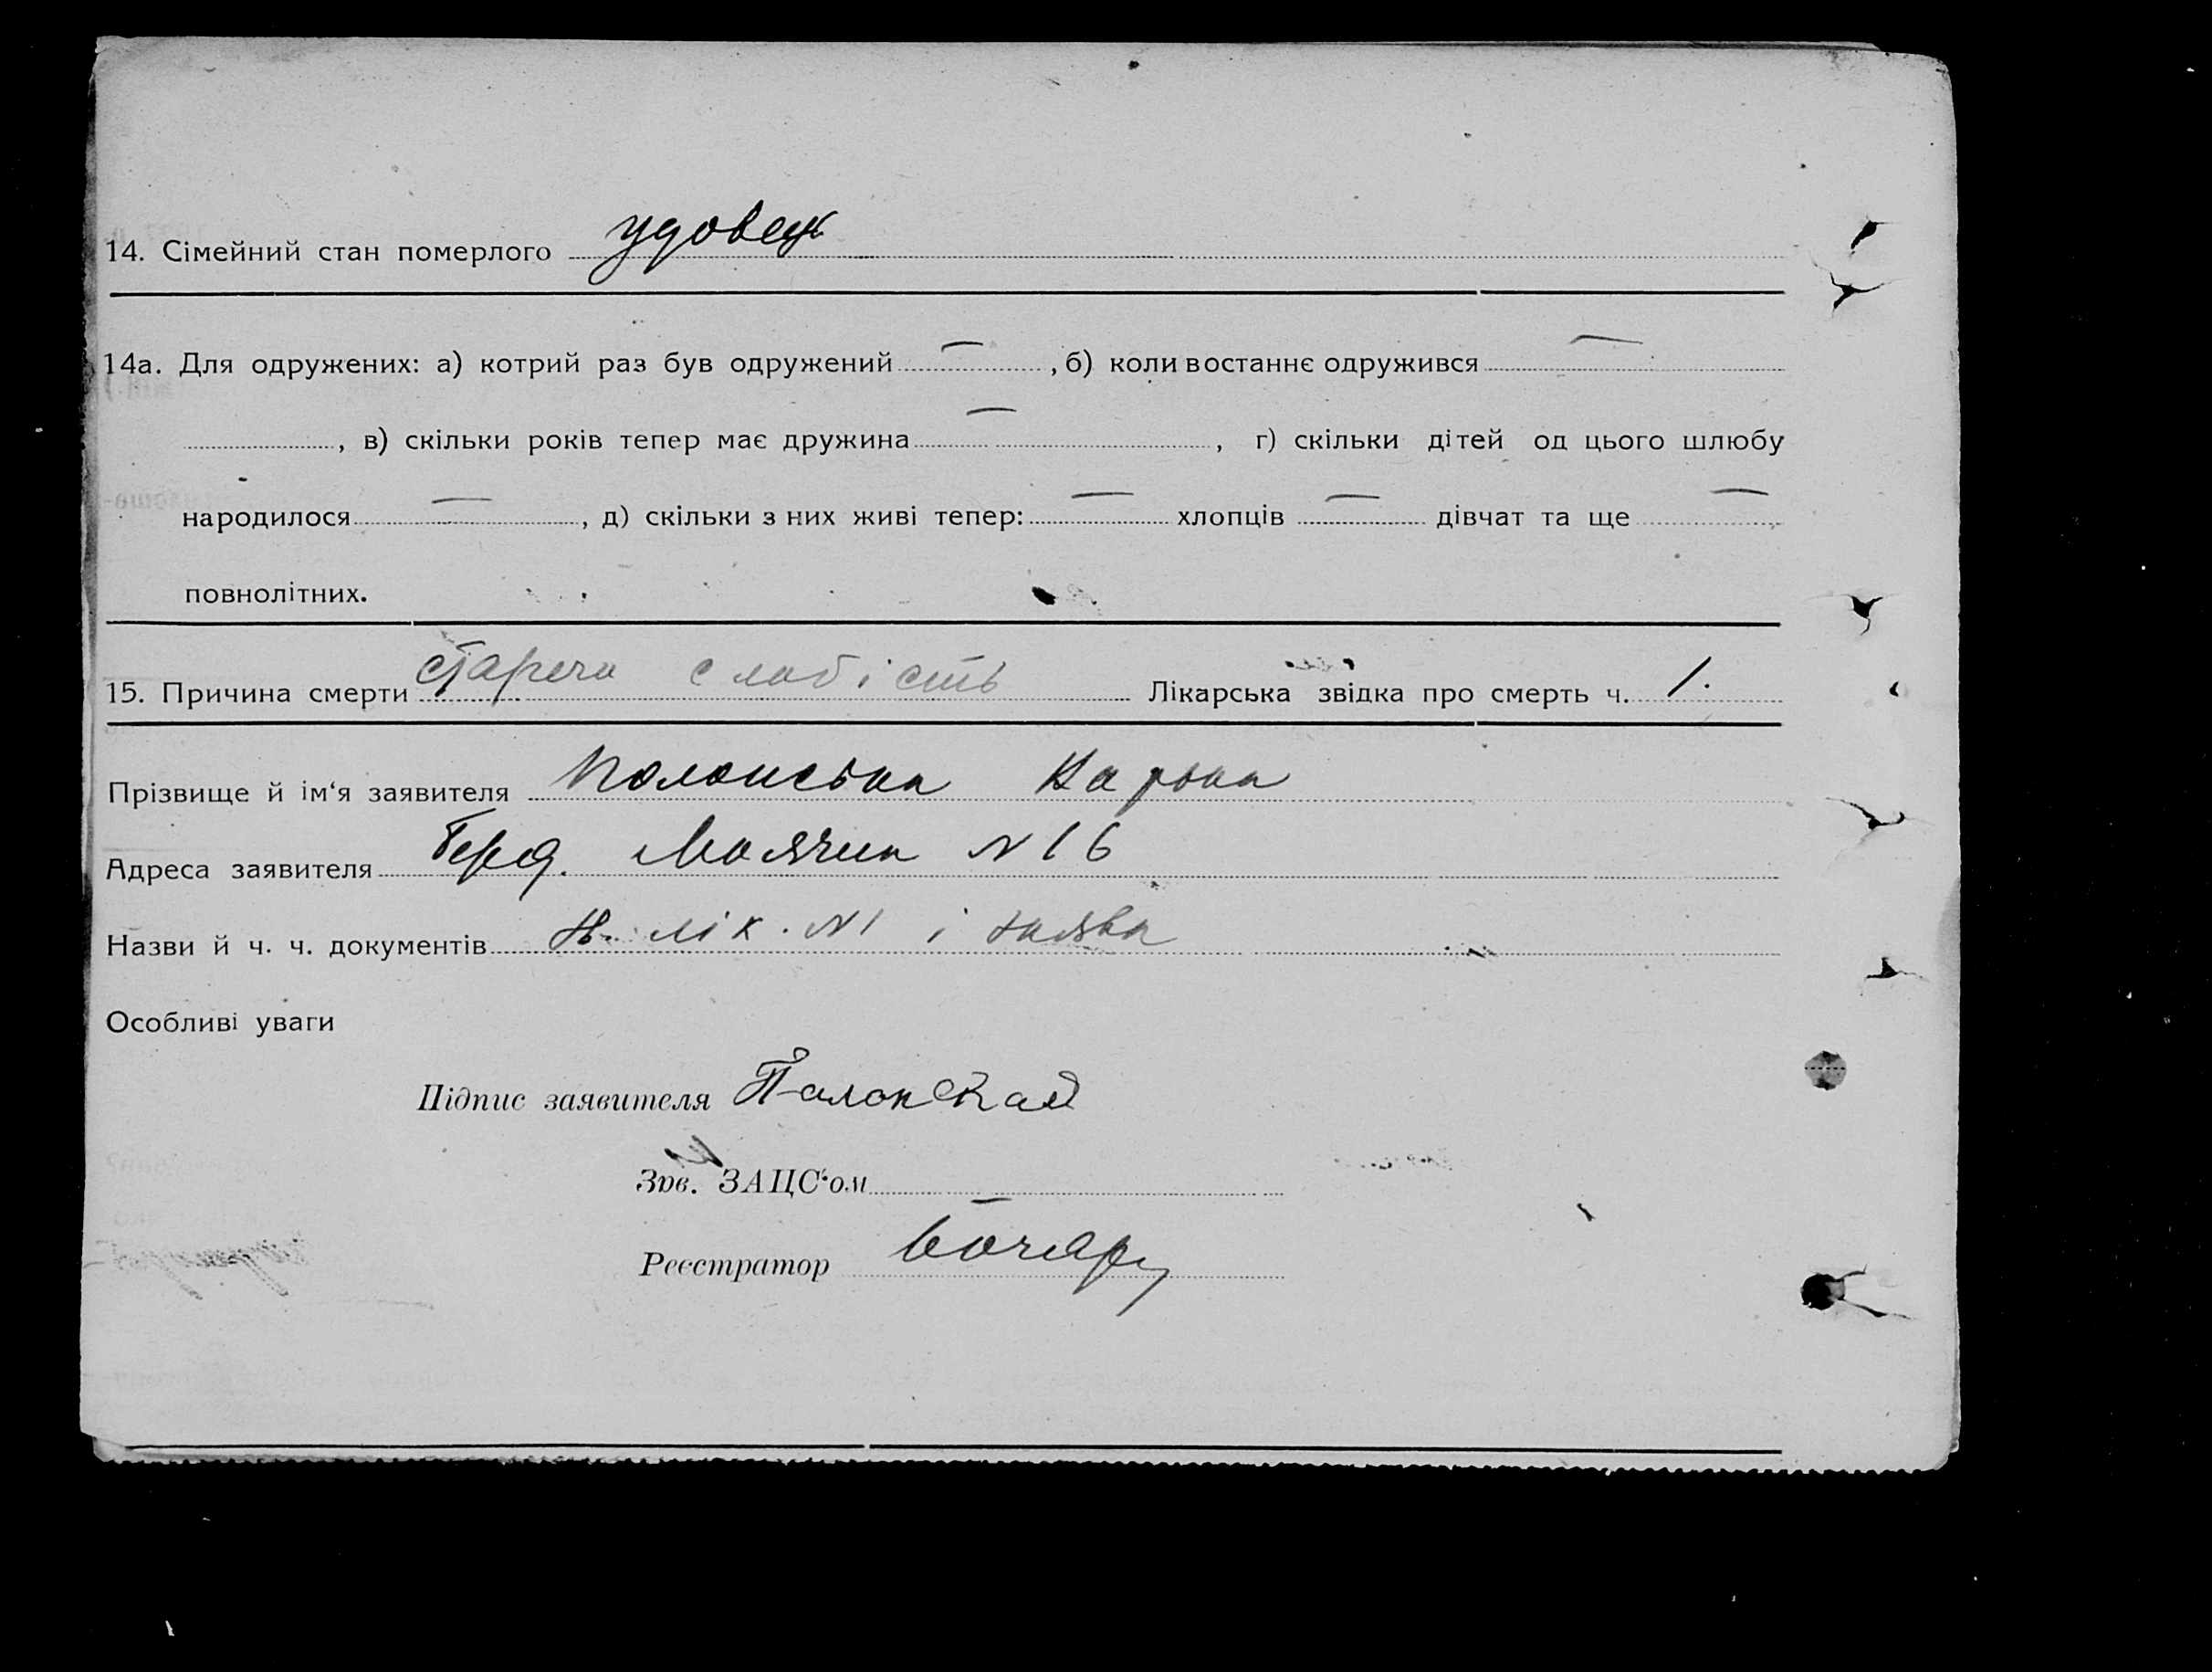 14. Сімейний стан померлого удовец
14а. Для одружених: а) котрий раз був одружений — , б) коли востаннє одружився —
, в) скільки років тепер має дружина — , г) скільки дітей од цього шлюбу
народилося — , д) скільки з них живі тепер: — хлопців — дівчат та ще —
повнолітних.
15. Причина смерти стареча слабість Лікарська звідка про смерть ч. 1.
Прізвище й ім'я заявителя Полонська
Адреса заявителя Берд. N 16
Назви й ч. ч. документів лік. N1 і заява
Особливі уваги
Підпис заявителя Палонская
Зав. ЗАЦС'ом
Реєстратор